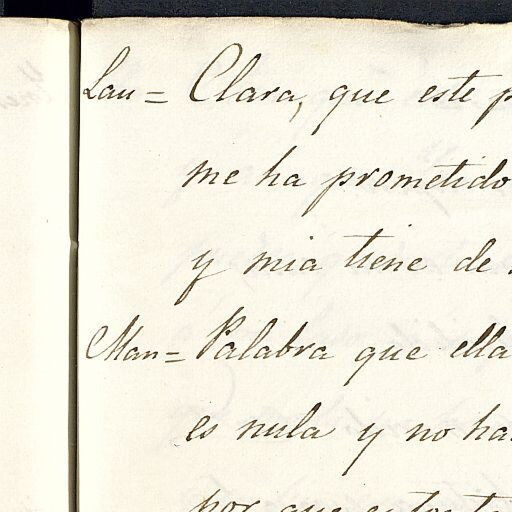 Lau = Clara, que este p
me ha prometido
y mia tiene de
Man = Palabra que ella
es nula y no ha
por que